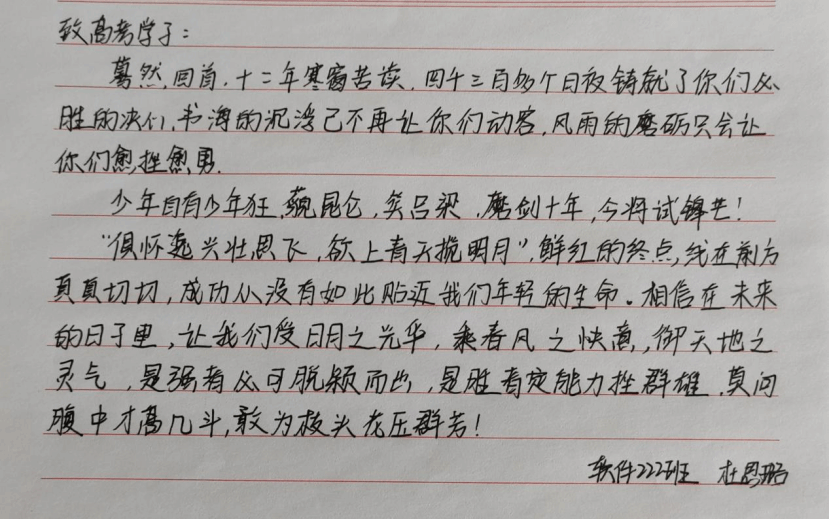 致高考学子：
蓦然回首，十二年寒窗苦读，四千三百多个日夜铸就了你们必
胜的决心，书海的沉浮已不再让你们动容，风雨的磨砺只会让
你们愈挫愈勇．
少年自有少年狂，藐昆仑，笑吕梁，磨剑十年，今将试锋芒！
“俱怀逸兴壮思飞，欲上青天揽明月”，鲜红的终点，线在前方
真真切切，成功从没有如此贴近我们年轻的生命。相信在未来
的日子里，让我们受日月之光华，乘春风之快意，御天地之
灵气，是强者必可脱颖而出，是胜者定能力挫群雄，莫问
腹中才高几斗，敢为枝头花压群芳！
软件222班 杜思